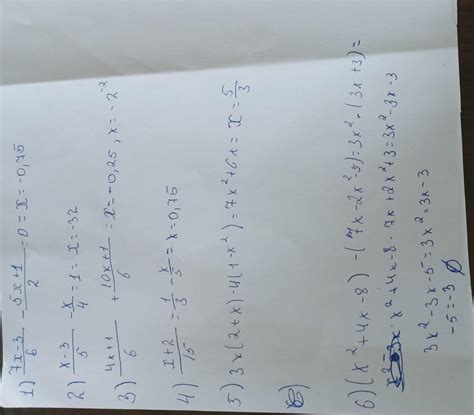 1) (7x-3)/6 - (5x+1)/2 = 0 = x = -0,75
2) (x-3)/5 - x/4 = 1 = x = -32
3) (4x+1)/6 + (10x+1)/6 : x = -0,25, x = -2⁻²
4) (x+2)/15 = 1/3 - x/5 = x = 0,75
5) 3x(2+x) - 4(1-x²) = 7x² + 6x = x = 5/3
6) (x² + 4x - 8) - (7x - 2x² - 5) = 3x² - (3x + 3) =
x² + 4x - 8 - 7x + 2x² + 3 = 3x² - 3x - 3
3x² - 3x - 5 = 3x² = 3x - 3
-5 = -3 ∅